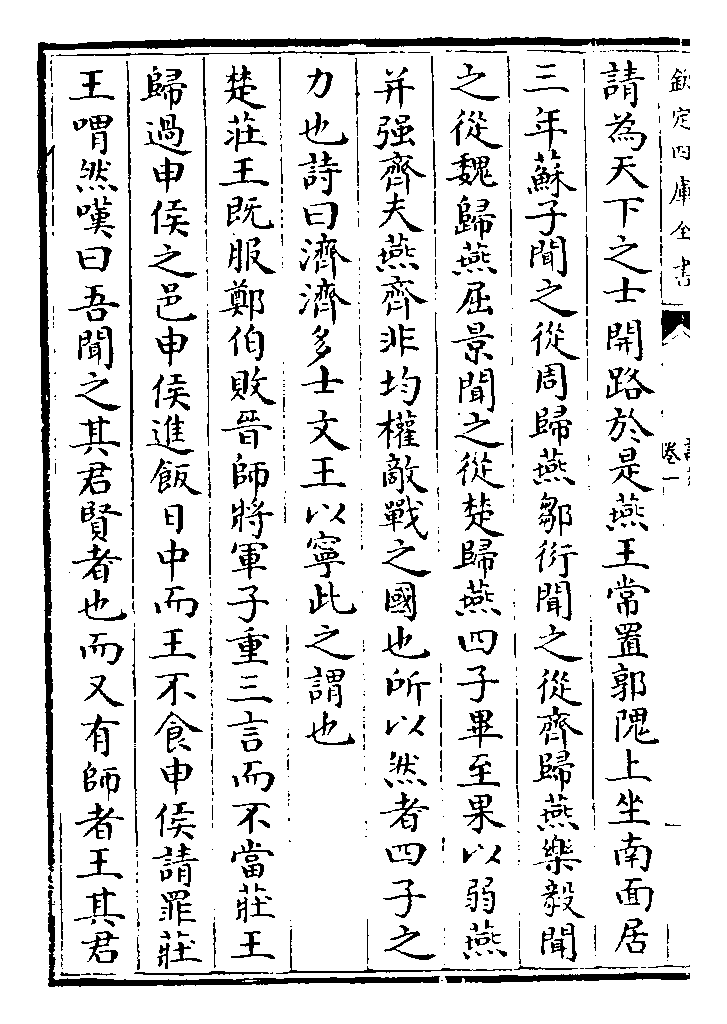 欽定四庫全書
卷一
請為天下之士開路於是燕王常置郭隗上坐南面居
三年蘇子聞之從周歸燕鄒衍聞之從齊歸燕樂毅聞
之從魏歸燕屈景聞之從楚歸燕四子畢至果以弱燕
并强齊夫燕齊非均權敵戰之國也所以然者四子之
力也詩曰濟濟多士文王以寧此之謂也
楚莊王既服鄭伯敗晉師將軍子重三言而不當莊王
歸過申侯之邑申侯進飯日中而王不食申侯請罪莊
王喟然嘆曰吾聞之其君賢者也而又有師者王其君